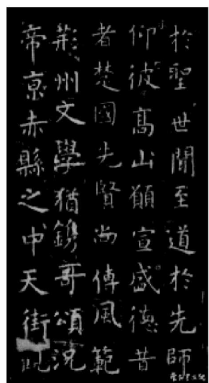 於聖世聞至道於先師
仰彼高山願宣盛德昔
者楚國先賢尚傳風範
荊州文學猶鐫哥頌況
帝京赤縣之中天街